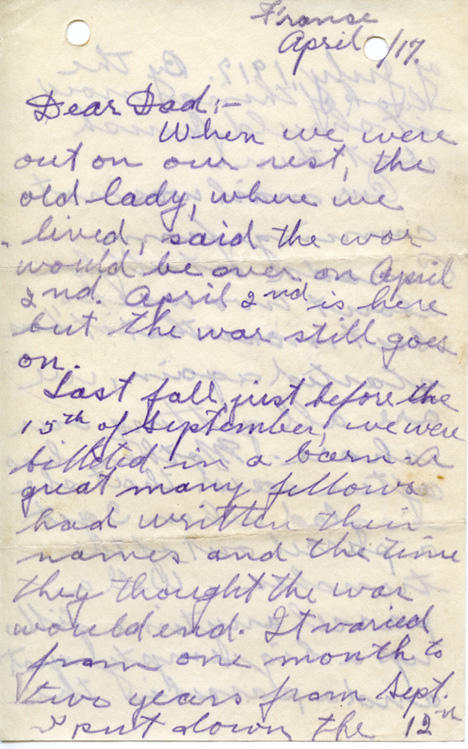 Franse
April /17.
Dear Dad:-
When we were
out on our rest, the
old lady, where we
lived, said the war
would be over on April
2nd. April 2nd is here
but the war still goes
on.
Last fall, just before the
15th of September, we were
billeted in a barn. A
great many fellows
had written their
names and the time
they thought the war
would end. It varied
from one month to
two years from Sept.
I put down the 12th